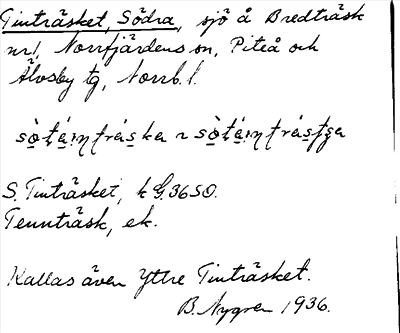 Tinträsket, Södra, sjö å Bredträsk
nr 1, Norrfjärdens sn, Piteå och
Älvsby tg, Norrb. l.
S. Tinträsket, k G. 36 SO.
Tennträsk, ek.
Kallas även Yttre Tinträsket.
B. Nygren 1936.